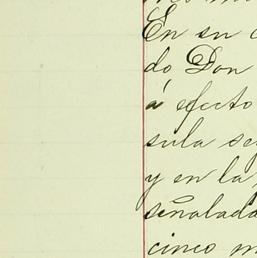 En su
do Don
á efecto
sula se
y en la
señalada
cinco m